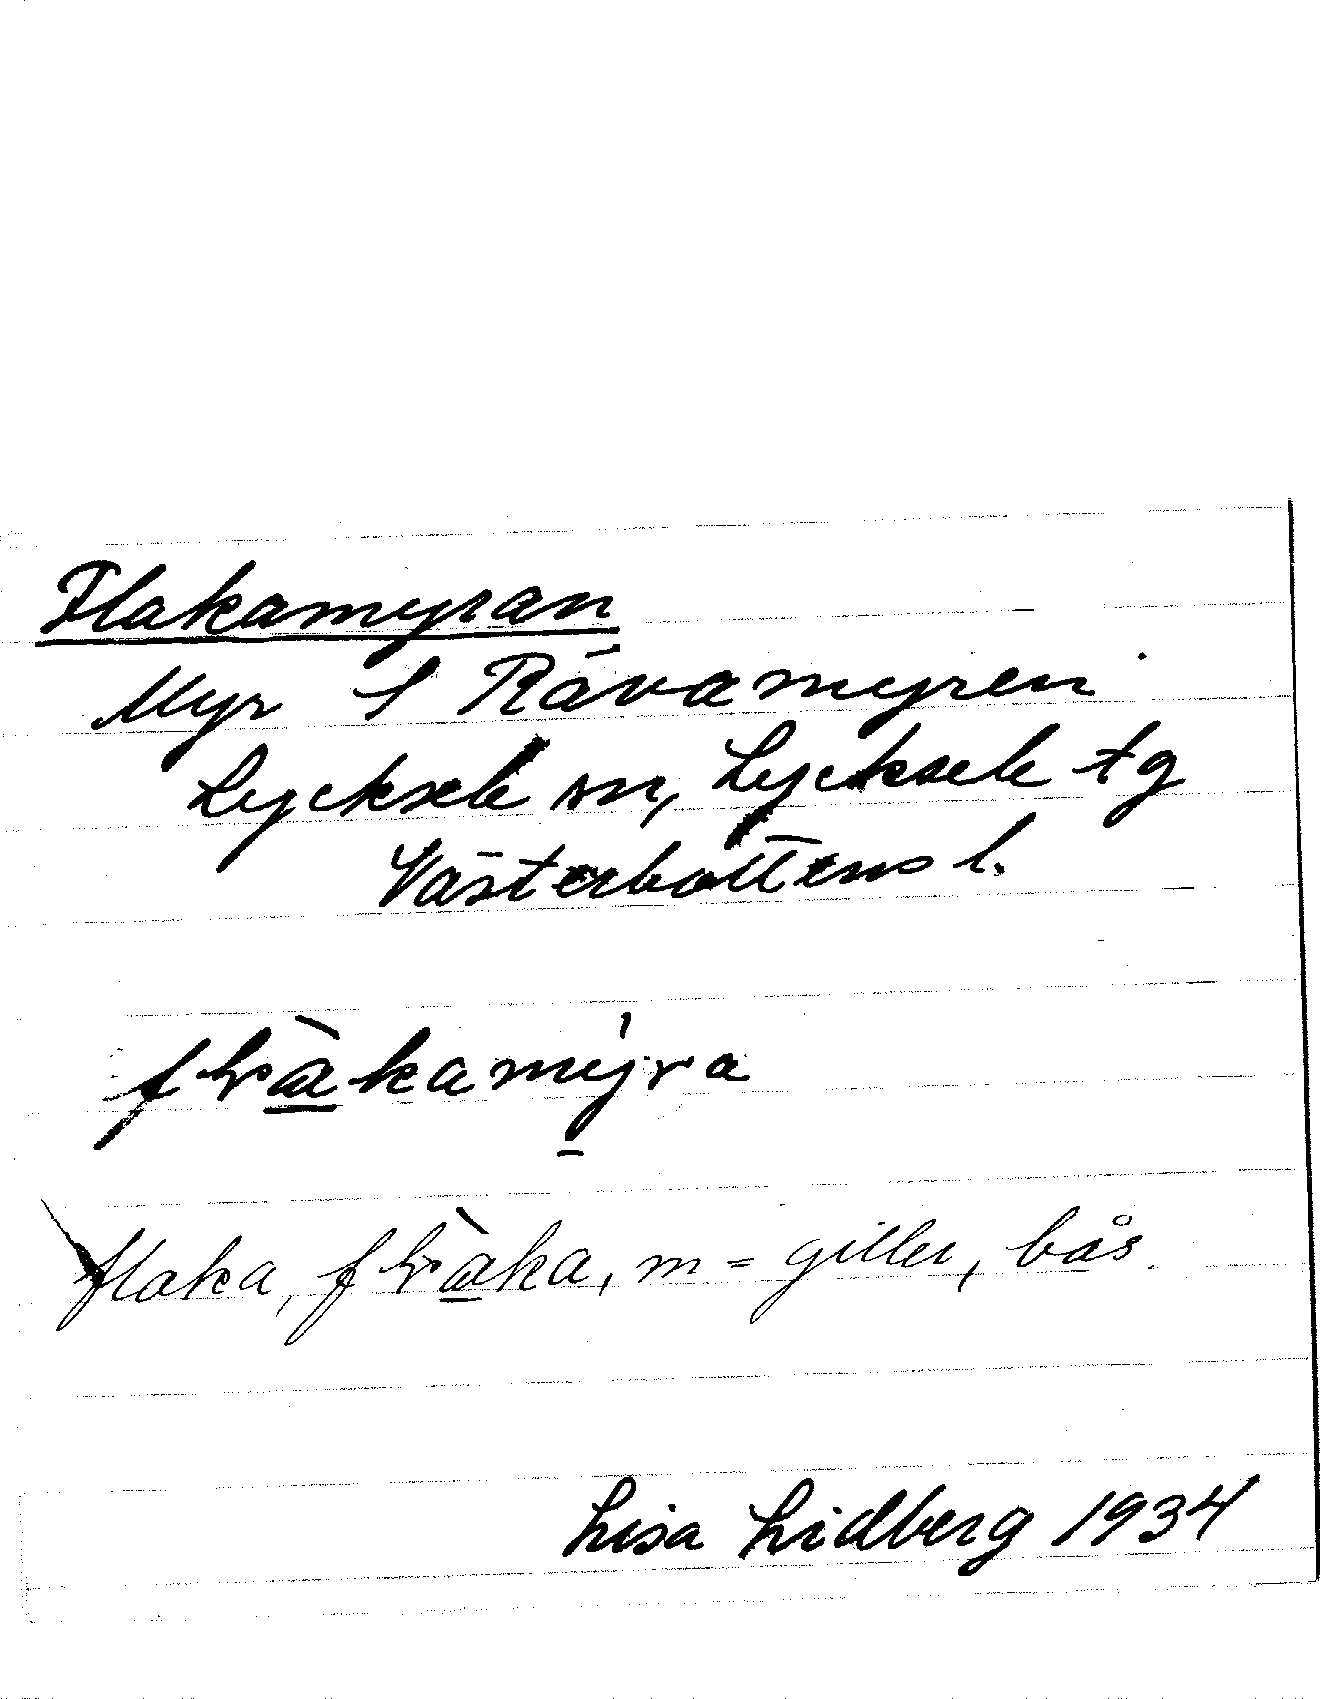 Flakamyran
Myr S Rävamyren
Lycksele sn, Lycksele tg
Västerbottens l.
flàkamýra
flaka, flàka, m = giller, bås.
Lisa Lidberg 1934